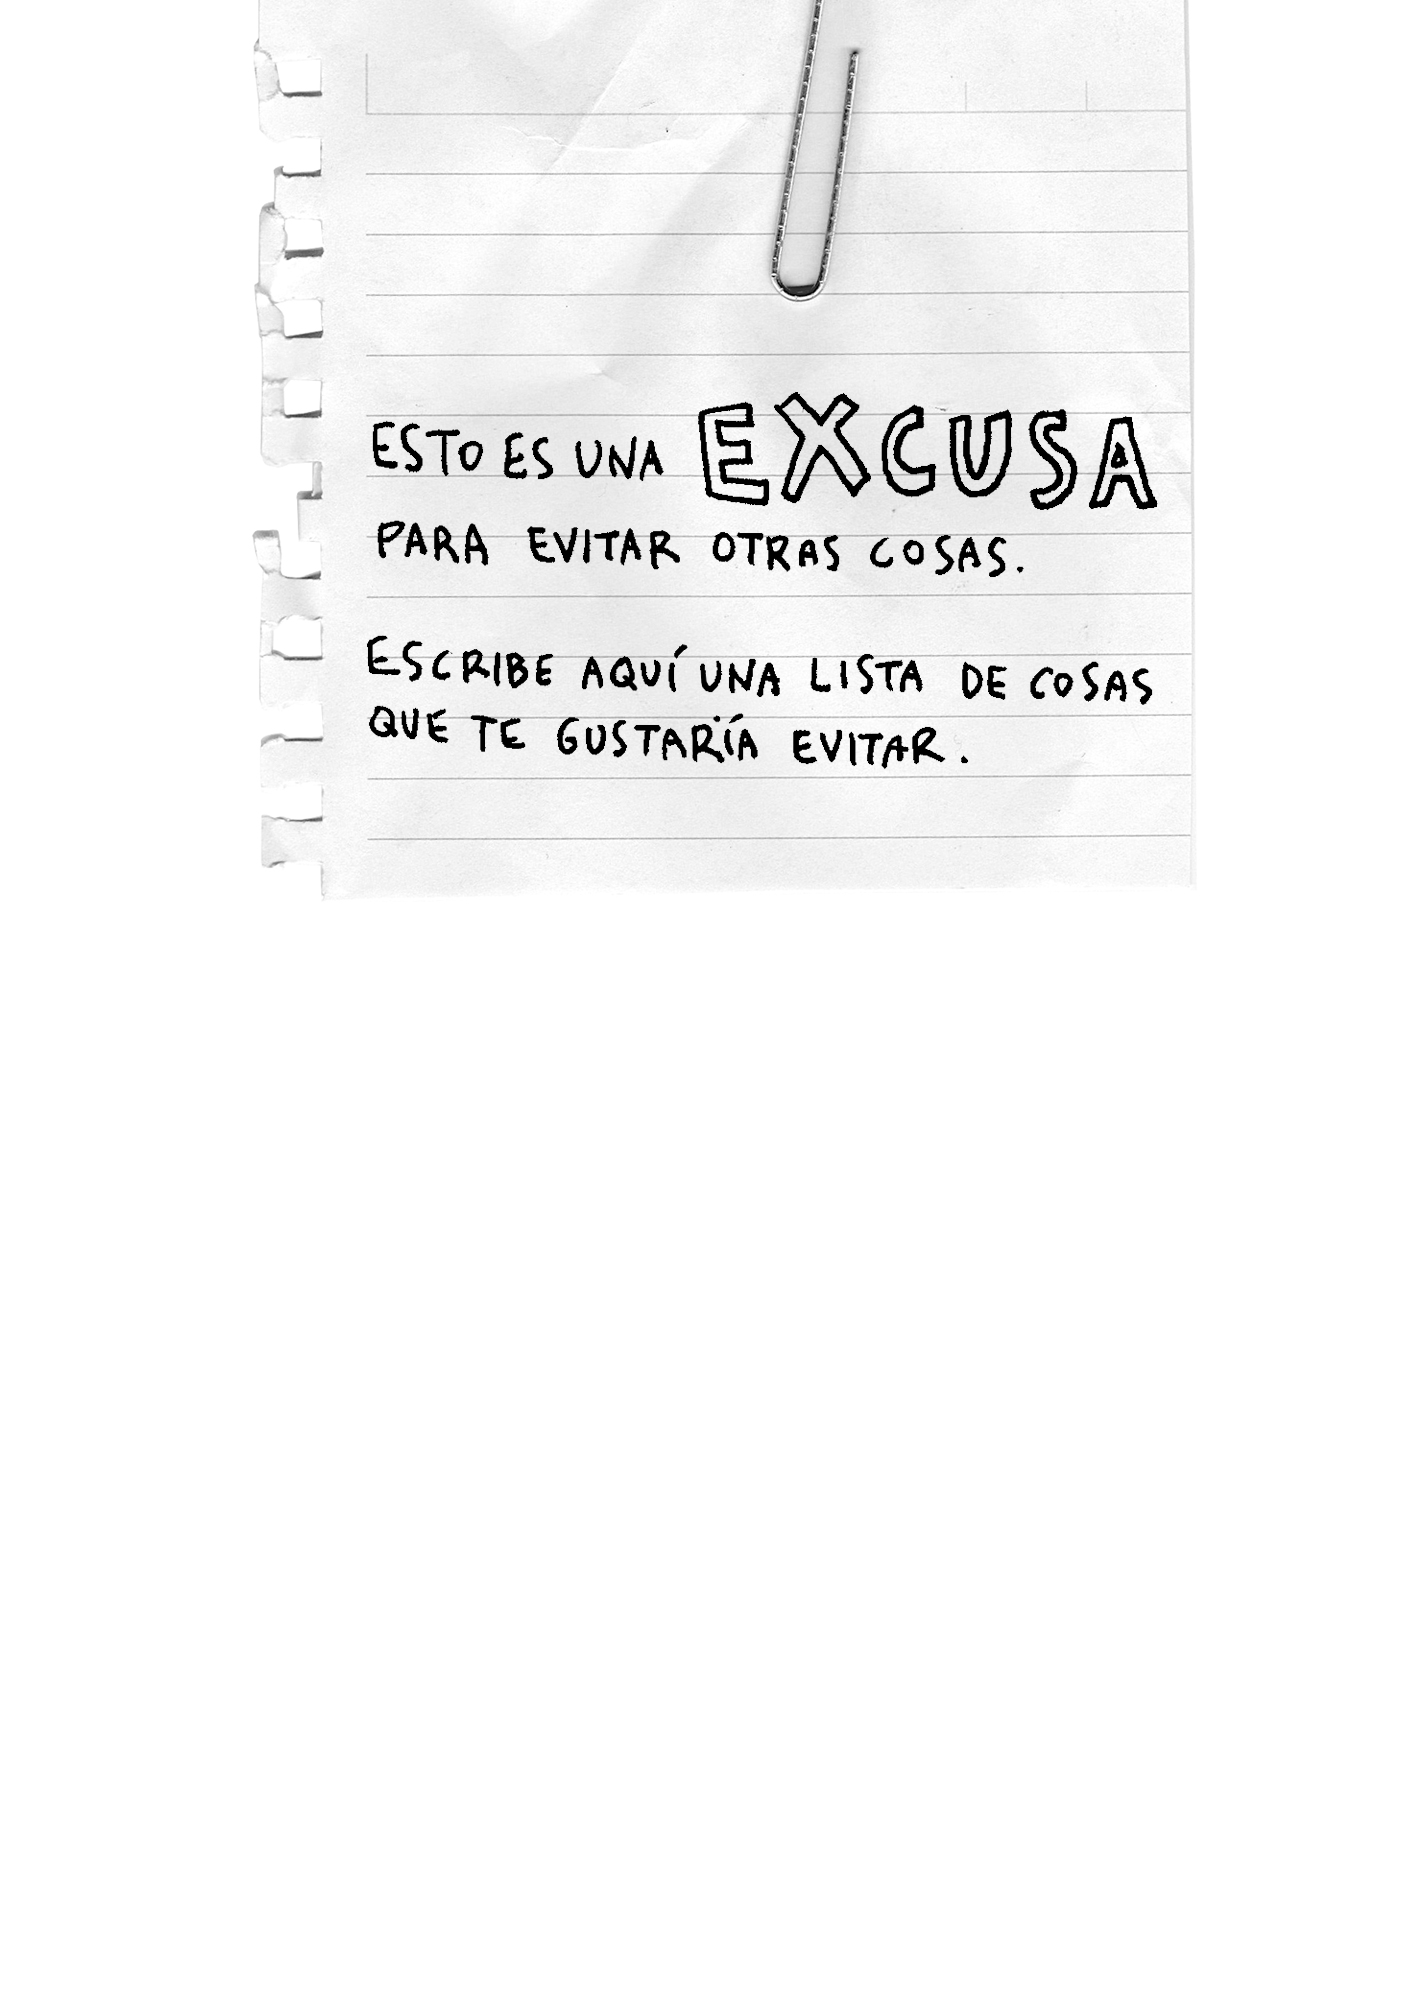 ESTO ES UNA EXCUSA
PARA EVITAR OTRAS COSAS.
ESCRIBE AQUÍ UNA LISTA DE COSAS
QUE TE GUSTARÍA EVITAR.